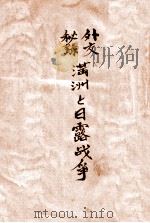 外交秘録
満洲と日露戦争